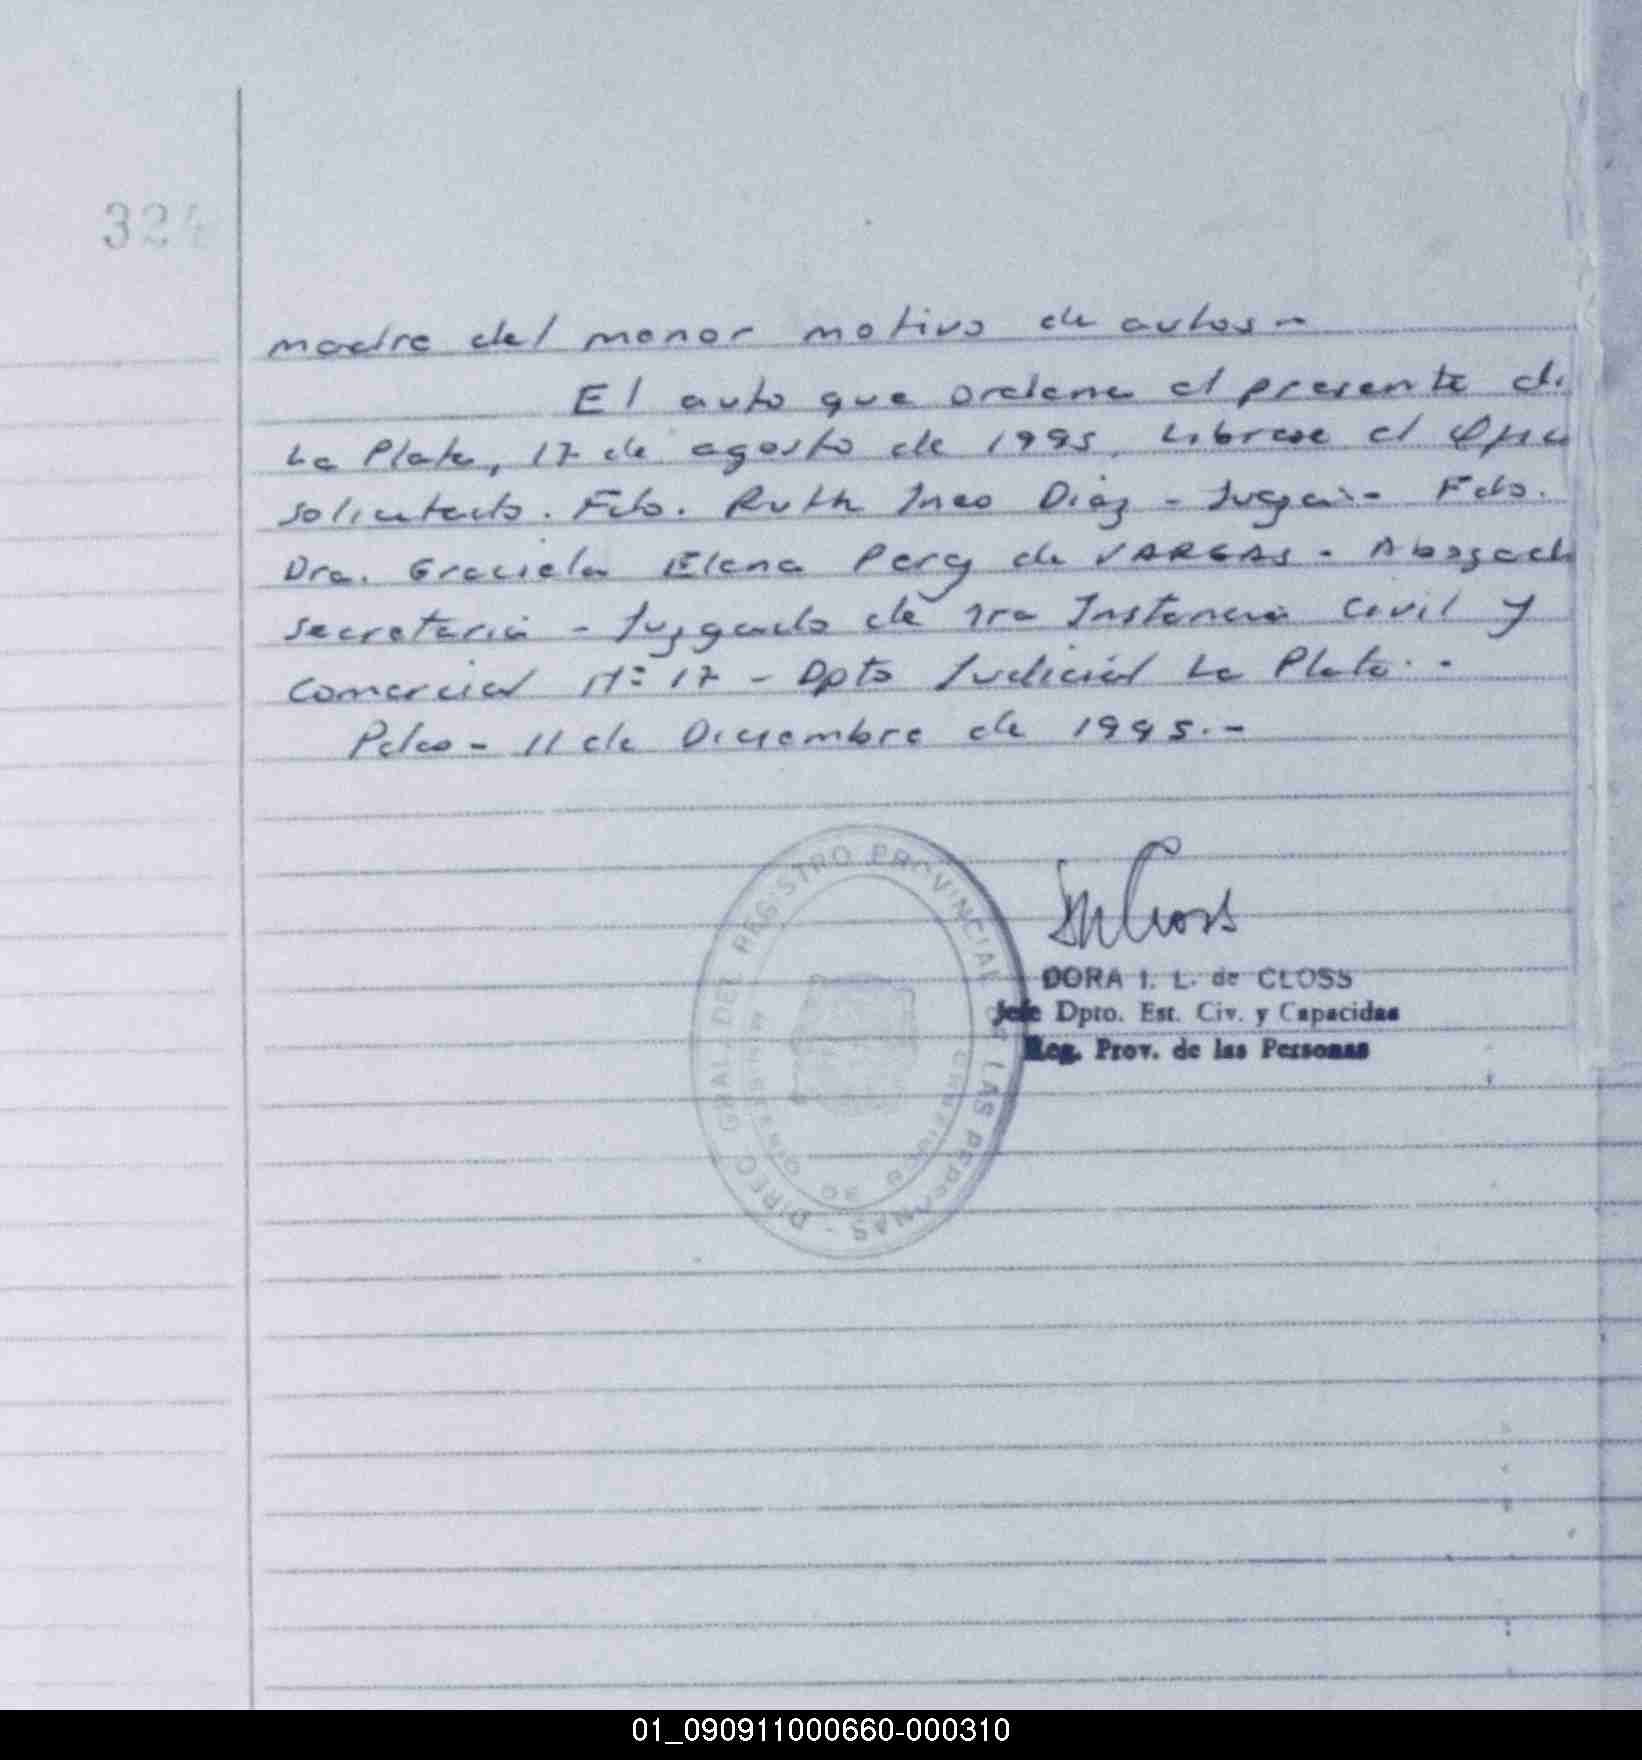 324
madre del menor motivo de autos -
El auto que ordena el presente di
La Plata, 17 de agosto de 1995. Librese el
solicitado. Fdo. Ruth Ines Diaz - Jueza - Fdo.
Dra. Graciela Elena Perez de VARGAS - Abogad
secretaria - Juzgado de 1ra Instancia Civil y
Comercial Nº 17 - Dpto Judicial La Plata. -
Pdas - 11 de Diciembre de 1995. -
DIREC. GRAL. DEL REGISTRO PROVINCIAL DE LAS PERSONAS -
MINISTERIO DE GOBIERNO
DORA I. L. de CLOSS
Jefe Dpto. Est. Civ. y Capacidas
Reg. Prov. de las Personas
01_090911000660-000310